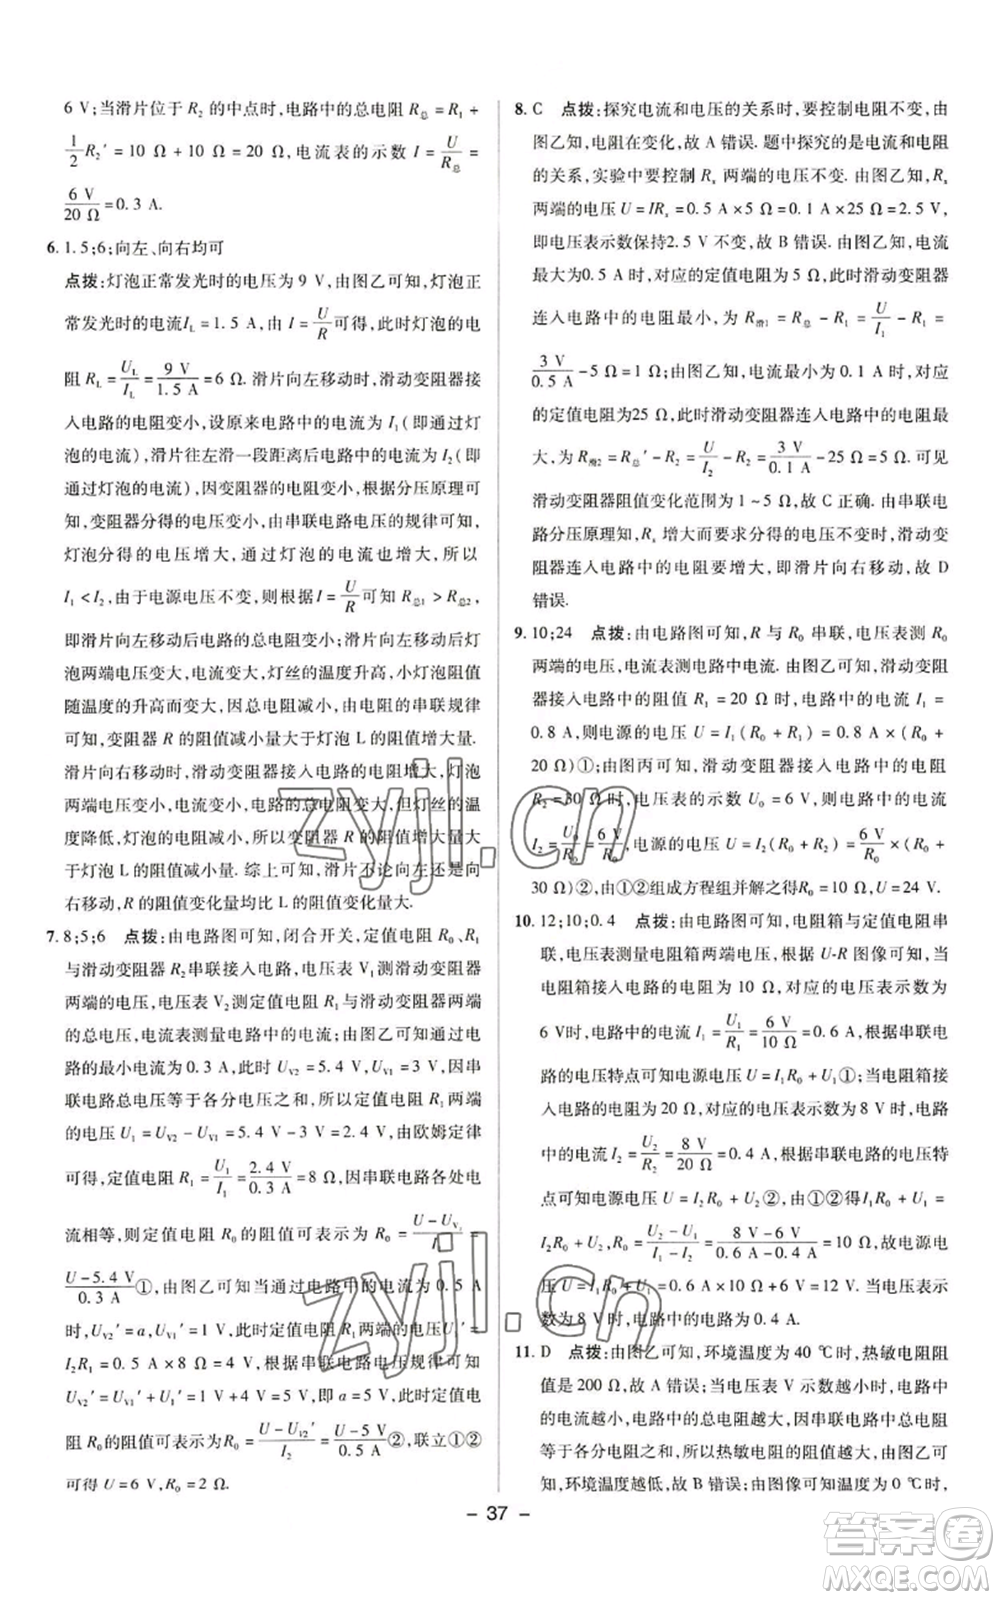 6 V;当滑片位于 R₂ 的中点时,电路中的总电阻 R总 = R₁ +
1/2 R₂′ = 10 Ω + 10 Ω = 20 Ω,电流表的示数 I = U/R总 =
6 V/20 Ω = 0.3 A.
6. 1.5;6;向左、向右均可
点拨:灯泡正常发光时的电压为 9 V,由图乙可知,灯泡正
常发光时的电流I_L = 1.5 A,由 I = U/R 可得,此时灯泡的电
阻 R_L = U_L/I_L = 9 V/1.5 A = 6 Ω. 滑片向左移动时,滑动变阻器接
入电路的电阻变小,设原来电路中的电流 I₁(即通过灯
泡的电流),滑片往左滑一段距离后电路中的电流 I₂(即
通过灯泡的电流),因变阻器的阻值变小,根据分压原理可
知,变阻器分得的电压变小,由串联电路电压的规律可知,
灯泡分得的电压增大,通过灯泡的电流增大,所以
I₁ < I₂,由于电源电压不变,根据I = U/R 可知 R总1 > R总2,
即滑片向左移动后电路的总电阻变小;滑片向左移动后灯
泡两端电压变大,电流变大,灯丝的温度升高,小灯泡阻值
随温度的升高而变大,因总电阻减小,由电阻的串联规律
可知,变阻器 R 的阻值减小量大于灯泡 L 的阻值增大量.
滑片向右移动时,滑动变阻器接入电路的电阻增大,灯泡
两端电压变小,电流变小,电路的总电阻变大,灯泡的温
度降低,灯泡的电阻减小,所以变阻器 R 的阻值增大量大
于灯泡 L 的阻值减小量. 综上可知,滑片不论向左还是
向右移动,R 的阻值变化量均比 L 的阻值变化量大.
7. 8;5;6 点拨:由电路图可知,闭合开关,定值电阻 R₀、R₁
与滑动变阻器 R₂ 串联接入电路,电压表 V₁ 测滑动变阻器
两端的电压,电压表 V₂ 测定值电阻 R₁ 与滑动变阻器两端
的总电压,电流表测量电路中的电流;由图乙可知通过电
路的最小电流为 0.3 A,此时 U_V2 = 5.4 V,U_V1 = 3 V,因串
联电路总电压等于各分电压之和,所以定值电阻 R₁ 两端
的电压 U₁ = U_V2 − U_V1 = 5.4 V − 3 V = 2.4 V,由欧姆定律
可得,定值电阻 R₁ = U₁/I₁ = 2.4 V/0.3 A = 8 Ω,因串联电路各处电
流相等,则定值电阻 R₀ 的阻值可表示为 R₀ = (U − U_V2)/I₁ =
(U − 5.4 V)/0.3 A①,由图乙可知当通过电路中的电流为 0.5 A
时,U_V2′ = a,U_V1′ = 1 V,此时定值电阻 R₁两端的电压U₁′ =
I₂R₁ = 0.5 A × 8 Ω = 4 V,根据串联电路电压规律可得
U_V2′ = U₁′ + U_V1′ = 4 V + 1 V = 5 V,即 a = 5 V,此时定值电
阻 R₀ 的阻值可表示为R₀ = (U − U_V2′)/I₂ = (U − 5 V)/0.5 A②,联立①②
可得 U = 6 V,R₀ = 2 Ω.
8. C 点拨:探究电流和电压的关系时,要控制电阻不变,由
图乙知,电阻在变化,故 A 错误. 题中探究的是电流和电阻
的关系,实验中要控制 Rₓ 两端的电压不变. 由图乙知,Rₓ
两端的电压 U = IRₓ = 0.5 A × 5 Ω = 0.1 A × 25 Ω = 2.5 V,
即电压表示数保持2.5 V 不变,故 B 错误. 由图乙知,电流
最大为0.5 A 时,对应的定值电阻为 5 Ω,此时滑动变阻器
连入电路中的电阻最小,为 R滑1 = R总 − R₁ = U/I₁ − R₁ =
3 V/0.5 A − 5 Ω = 1 Ω;由图乙知,电流最小为 0.1 A 时,对应
的定值电阻为25 Ω,此时滑动变阻器连入电路中的电阻最
大,为 R滑2 = R总′ − R₂ = U/I₂ − R₂ = 3 V/0.1 A − 25 Ω = 5 Ω. 可见
滑动变阻器阻值变化范围为 1 ~ 5 Ω,故 C 正确. 由串联电
路分压原理知,Rₓ 增大而要求分得的电压不变时,滑动变
阻器连入电路中的电阻要增大,即滑片向右移动,故 D
错误.
9. 10;24 点拨:由电路图可知,R 与 R₀ 串联,电压表测 R₀
两端的电压,电流表测电路中电流. 由图乙可知,滑动变阻
器接入电路中的阻值 R₁ = 20 Ω 时,电路中的电流 I₁ =
0.8 A,则电源的电压 U = I₁(R₀ + R₁) = 0.8 A × (R₀ +
20 Ω)①;由图丙可知,滑动变阻器接入电路中的电阻
R₂ = 30 Ω 时,电压表的示数 U₀ = 6 V,则电路中的电流
I₂ = U₀/R₀ = 6 V/R₀,电源的电压 U = I₂(R₀ + R₂) = 6 V/R₀ × (R₀ +
30 Ω)②,由①②组成方程组并解之得R₀ = 10 Ω,U = 24 V.
10. 12;10;0.4 点拨:由电路图可知,电阻箱与定值电阻串
联,电压表测量电阻箱两端电压,根据 U-R 图像可知,当
电阻箱接入电路的电阻为 10 Ω,对应的电压表示数为
6 V时,电路中的电流 I₁ = U₁/R₁ = 6 V/10 Ω = 0.6 A,根据串联电
路的电压特点可知电源电压 U = I₁R₀ + U₁①;当电阻箱接
入电路的电阻为 20 Ω,对应的电压表示数为 8 V 时,电路
中的电流 I₂ = U₂/R₂ = 8 V/20 Ω = 0.4 A,根据串联电路的电压特
点可知电源电压 U = I₂R₀ + U₂②,由①②得I₁R₀ + U₁ =
I₂R₀ + U₂,即R₀ = (U₂ − U₁)/(I₁ − I₂) = (8 V − 6 V)/(0.6 A − 0.4 A) = 10 Ω,故电源电
压 U = I₁R₀ + U₁ = 0.6 A × 10 Ω + 6 V = 12 V. 当电压表示
数为 8 V 时,电路中的电流为 0.4 A.
11. D 点拨:由图乙可知,环境温度为 40 ℃时,热敏电阻阻
值是 200 Ω,故 A 错误;当电压表 V 示数越小时,电路中
的电流越小,电路中的总电阻越大,因串联电路中总电阻
等于各分电阻之和,所以热敏电阻的阻值越大,由图乙可
知,环境温度越低,故 B 错误;由图像可知温度为 0 ℃时,
- 37 -
zyjl.cn
zyjl.cn
答案圈
MXQE.COM